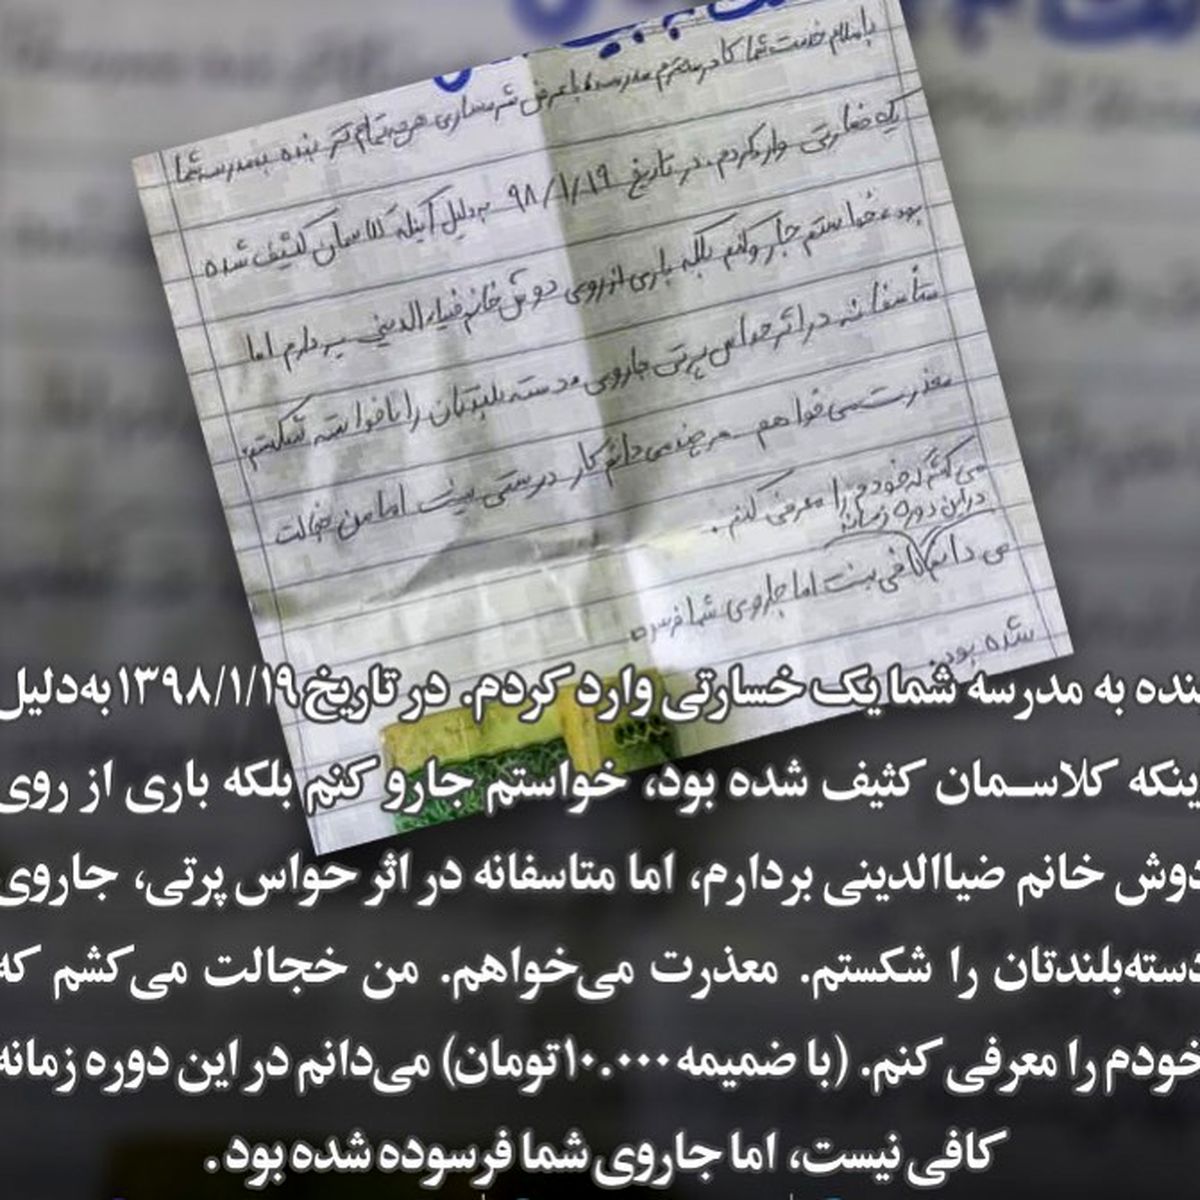 باسلام خدمت شما کادر محترم مدرسه، با عرض شرمساری هرچه تمام تر بنده به مدرسه شما
یک خسارتی وارد کردم. در تاریخ ۹۸/۱/۱۹ به دلیل اینکه کلاسمان کثیف شده
بود، خواستم جارو کنم بلکه باری از روی دوش خانم ضیاءالدینی بردارم اما
متاسفانه در اثر حواس پرتی جاروی دسته بلندتان را ناخواسته شکستم.
معذرت می خواهم هرچند می دانم کار درستی نیست اما من خجالت
می کشم که خودم را معرفی کنم.
در این دوره زمانه
می دانم کافی نیست اما جاروی شما فرسوده
شده بود.
نده به مدرسه شما یک خسارتی وارد کردم. در تاریخ ۱۳۹۸/۱/۱۹ به‌دلیل
ینکه کلاسمان کثیف شده بود، خواستم جارو کنم بلکه باری از روی
دوش خانم ضیاالدینی بردارم، اما متاسفانه در اثر حواس پرتی، جاروی
دسته‌بلندتان را شکستم. معذرت می‌خواهم. من خجالت می‌کشم که
خودم را معرفی کنم. (با ضمیمه ۱۰.۰۰۰ تومان) می‌دانم در این دوره زمانه
کافی نیست، اما جاروی شما فرسوده شده بود.